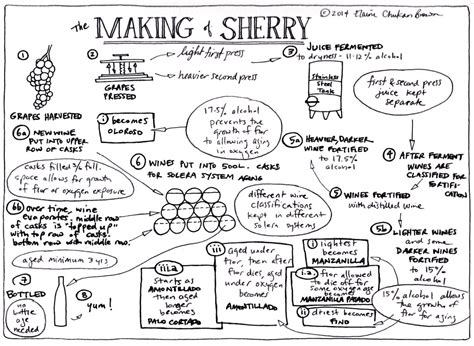 ©2014 Elaine Chukan Brown
The MAKING of SHERRY
1
GRAPES HARVESTED
2
light first press
heavier second press
GRAPES
PRESSED
3 JUICE FERMENTED
to dryness - 11-12% alcohol
Stainless
Steel
Tank
first & second press
juice kept
separate
4 AFTER FERMENT
WINES ARE
CLASSIFIED FOR
FORTIFI-
CATION
5 WINES FORTIFIED
with distilled wine
5a HEAVIER, DARKER
WINE FORTIFIED
to 17.5%
alcohol
17.5% alcohol
prevents the
growth of flor
to allowing aging
in oxygen
i becomes
OLOROSO
5b LIGHTER WINES
and some
DARKER WINES
FORTIFIED
to 15%
alcohol
15% alcohol allows
the growth
of flor for aging
6 WINES PUT INTO 500L. CASKS
FOR SOLERA SYSTEM AGING
6a NEW WINE
PUT INTO UPPER
ROW OF CASKS
casks filled 3/4 full,
space allows for growth
of flor or oxygen exposure
6b over time, wine
evaporates. middle row
of casks is "topped up"
with top row of casks.
bottom row with middle row.
different wine
classifications
kept in different
solera systems
aged minimum 3 yrs
7
BOTTLED
no
bottle
age
needed
8
yum!
i lightest
becomes
MANZANILLA
i.a flor allowed
to die off for
some oxygen age
becomes
MANZANILLA PASADO
ii driest becomes
FINO
iii Aged under
flor, then after
flor dies, aged
under oxygen
becomes
AMONTILLADO
iii.a
starts as
AMONTILLADO
then aged
longer
becomes
PALO CORTADO